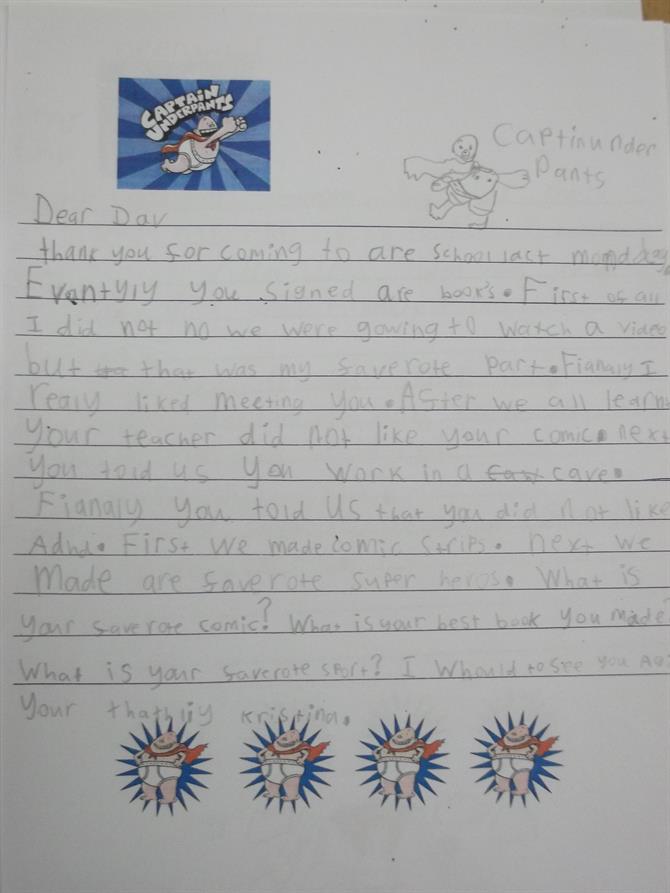 CAPTAIN
UNDERPANTS
Captinunder
Pants
Dear Dav
thank you for coming to are school last monday
Evantyly you signed are book's. First of all
I did not no we were gowing to watch a video
but that was my faverote part. Fianaly I
realy liked meeting you. After we all learn
your teacher did not like your comic. next
you told us you work in a cave.
Fianaly you told us that you did not like
Adhd. First we made comic strips. next we
made are faverote super heros. What is
your faverote comic? What is your best book you made?
What is your faverote sport? I Whould to see you Ag
your thathliy kristina.